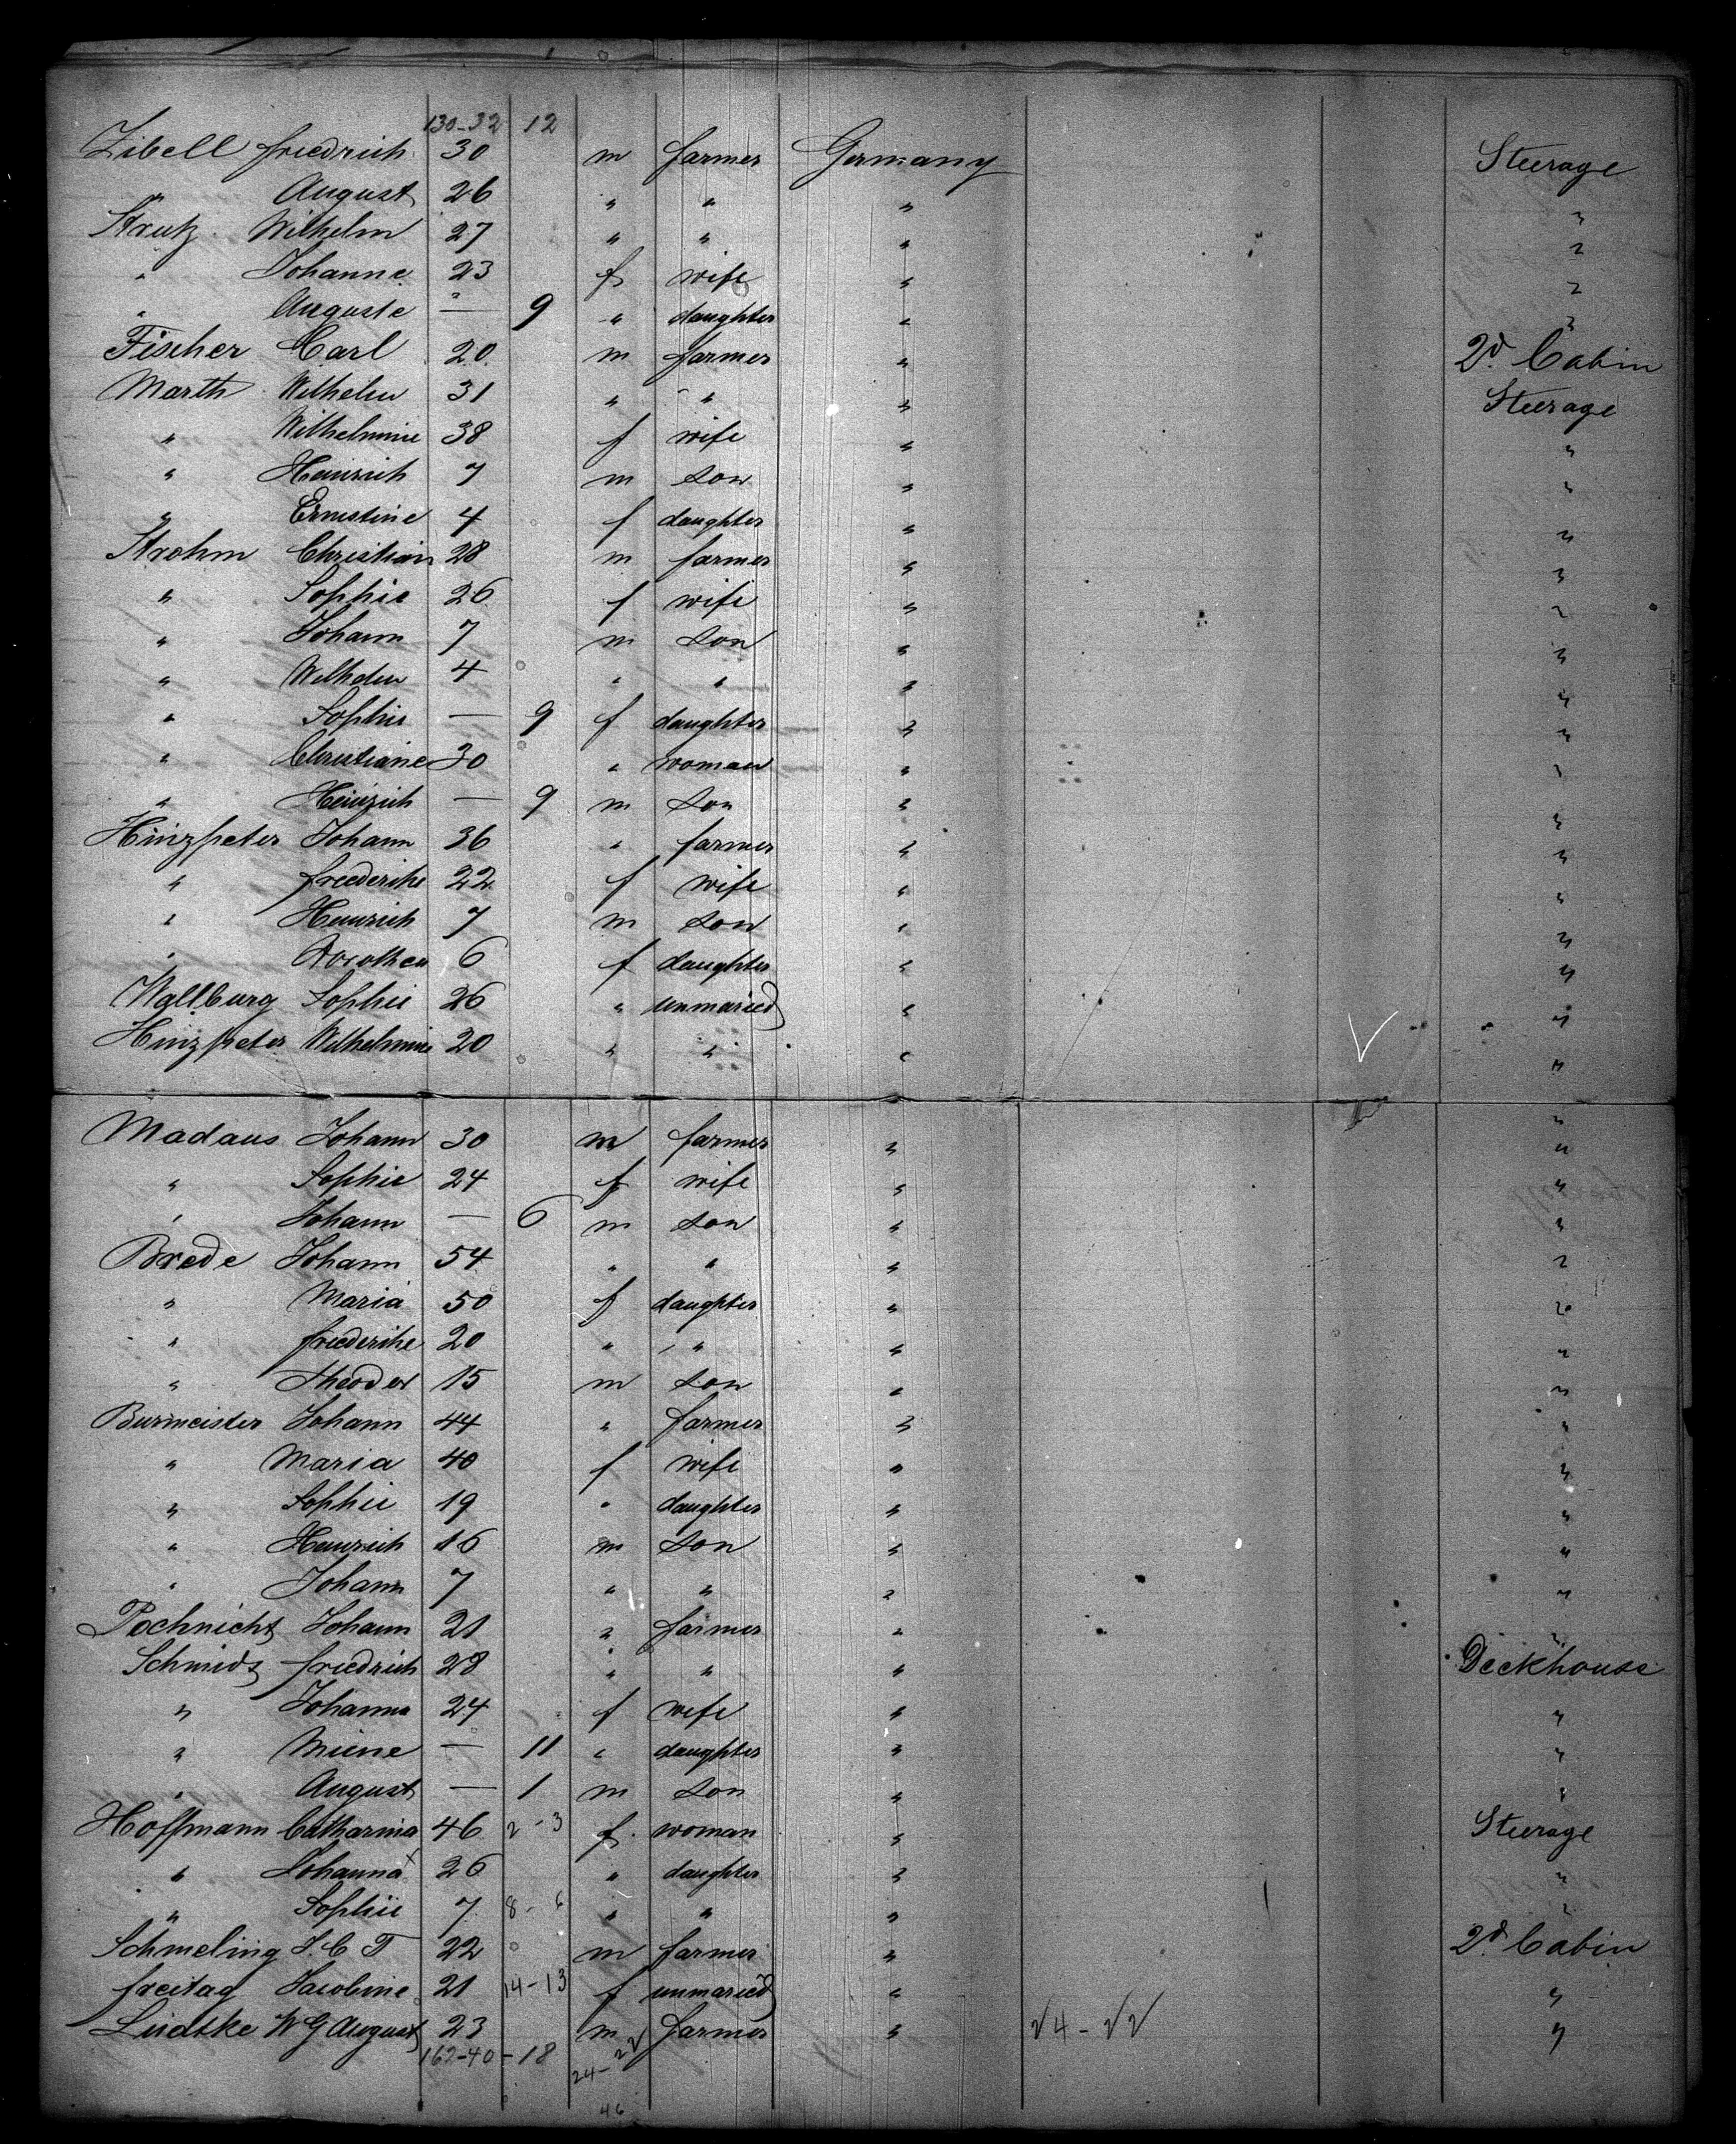 130-32 12
Zibell Friedrich 30 m farmer Germany Steerage
" August 26 " " " "
Strutz Wilhelm 27 " " " "
" Johanne 23 f wife " "
" Auguste — 9 " daughter " "
Fischer Carl 20 m farmer " 2d. Cabin
Marth Wilhelm 31 " " " Steerage
" Wilhelmine 38 f wife " "
" Heinrich 7 m son " "
" Ernestine 4 f daughter " "
Strohm Christian 28 m farmer " "
" Sophie 26 f wife " "
" Johann 7 m son " "
" Wilhelm 4 " " " "
" Sophie — 9 f daughter " "
" Christiane 30 " woman " "
" Heinrich — 9 m son " "
Hinzpeter Johann 36 " farmer " "
" Friederike 22 f wife " "
" Heinrich 7 m son " "
" Dorothea 6 f daughter " "
Wallburg Sophie 26 " unmaried " "
Hinzpeter Wilhelmine 20 " " " "
Madaus Johann 30 m farmer " "
" Sophie 24 f wife " "
" Johann — 6 m son " "
Brede Johann 54 " " " "
" Maria 50 f daughter " "
" Friederike 20 " " " "
" Theodor 15 m son " "
Burmeister Johann 44 " farmer " "
" Maria 40 f wife " "
" Sophie 19 " daughter " "
" Heinrich 16 m son " "
" Johann 7 " " " "
Pochnicht Johann 21 " farmer " "
Schmidt Friedrich 28 " " " Deckhouse
" Johanna 24 f wife " "
" Miene — 11 " daughter " "
" August — 1 m son " "
Hoffmann Catharina 46 2-3 f woman " Steerage
" Johanna 26 " daughter " "
" Sophie 7 8-6 " " " "
Schmeling J. C T 22 m farmer " 2d. Cabin
Freitag Jacobine 21 14-13 f unmaried " "
Luedtke W G August 23 m farmer " 24-22 "
162-40-18 24-22
46